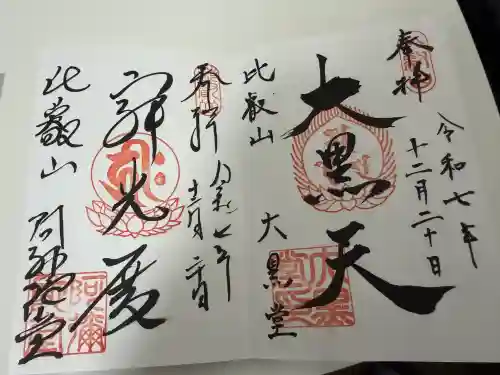 奉拝
令和七年
十二月二十日
大黒天
比叡山
大黒堂
奉拝
令和七年
十二月二十日
比叡山
阿弥陀堂